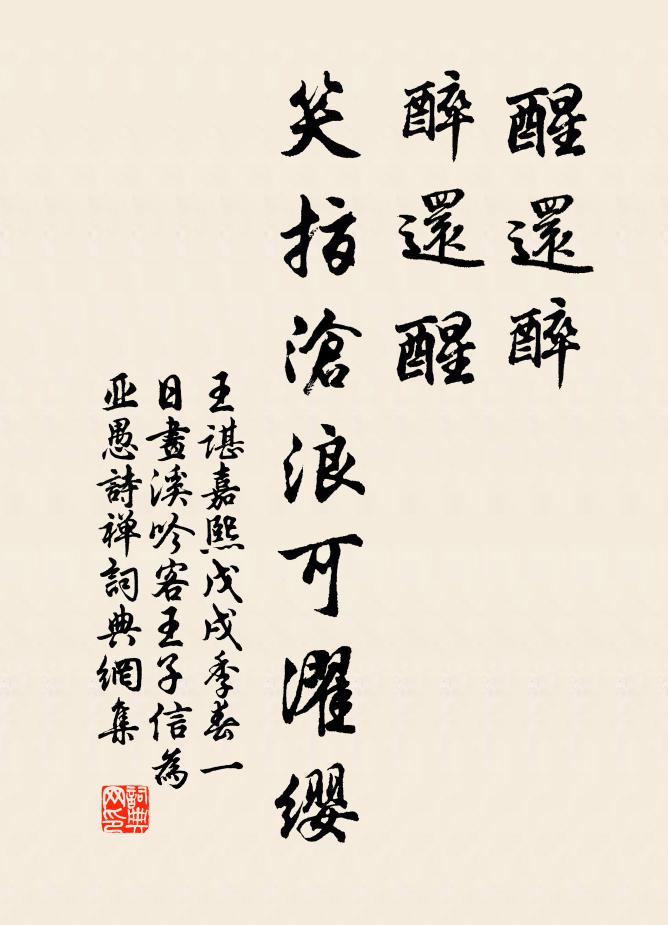 醒還醉
醉還醒
笑指滄浪可濯纓
王諶嘉熙戊戌季春一
日畫溪吟客王子信為
亚愚詩禅詞典網集
詞典
网印